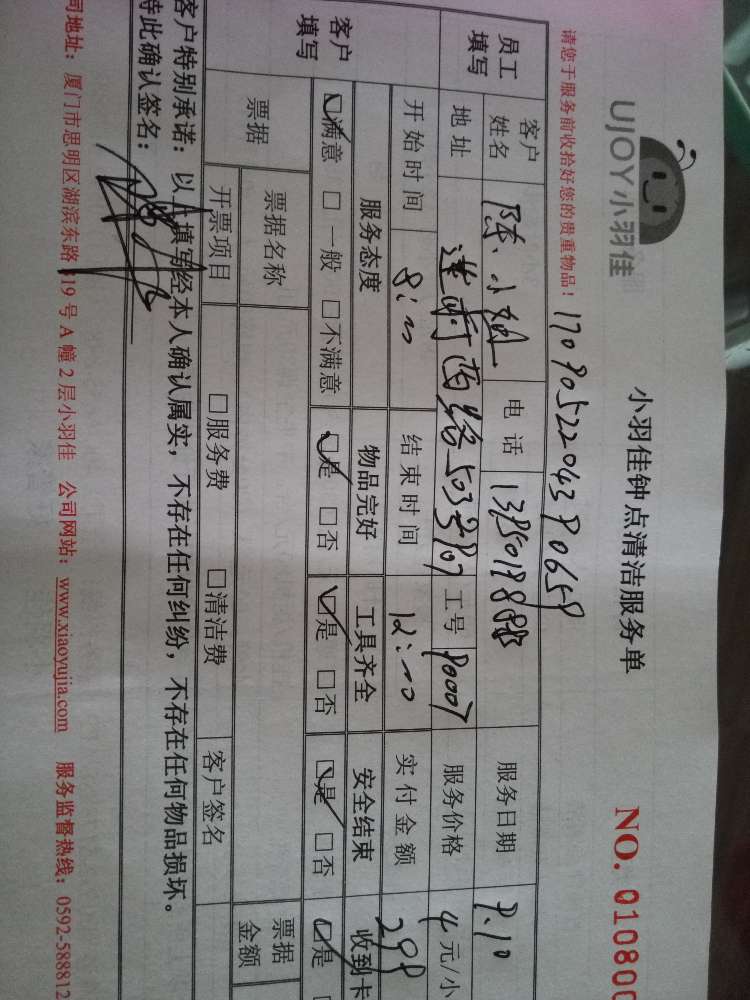 UJOY小羽佳
小羽佳钟点清洁服务单
NO. 010800
请您于服务前收拾好您的贵重物品！
员工填写 客户姓名 陈小姐 电话 服务日期 9.10
地址 工号 服务价格 4 元/小
开始时间 8:00 结束时间 12:00 实付金额 298
客户填写 服务态度 物品完好 工具齐全 安全结束 收到卡
☑满意 □一般 □不满意 ☑是 □否 ☑是 □否 ☑是 □否 ☑是
票据 票据名称 票据金额
开票项目 □服务费 □清洁费 客户签名
客户特别承诺：以上填写经本人确认属实，不存在任何纠纷，不存在任何物品损坏。
特此确认签名：
司地址：厦门市思明区湖滨东路319号A幢2层小羽佳 公司网站：www.xiaoyujia.com 服务监督热线：0592-588812